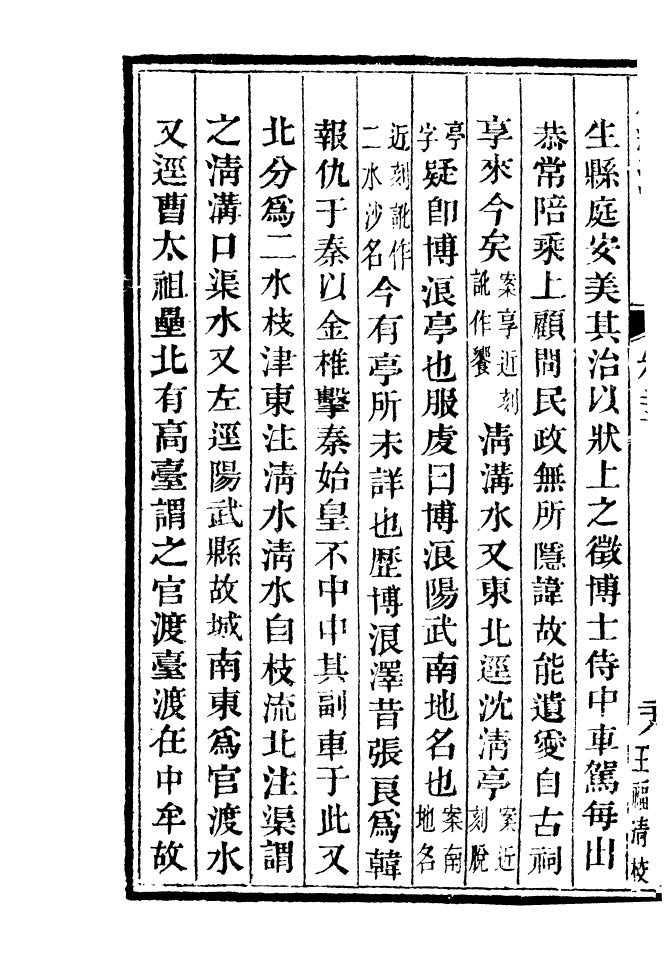 王福清校
生縣庭安美其治以狀上之徵博士侍中車駕每出
恭常陪乘上顧問民政無所隱諱故能遺愛自古祠
享來今矣案享近刻訛作饗清溝水又東北逕沈清亭案近刻脫
亭字疑即博浪亭也服虔曰博浪陽武南地名也案南地名
近刻訛作二水沙名今有亭所未詳也歷博浪澤昔張良爲韓
報仇于秦以金椎擊秦始皇不中中其副車于此又
北分爲二水枝津東注清水清水自枝流北注渠謂
之清溝口渠水又左逕陽武縣故城南東爲官渡水
又逕曹太祖壘北有高臺謂之官渡臺渡在中牟故